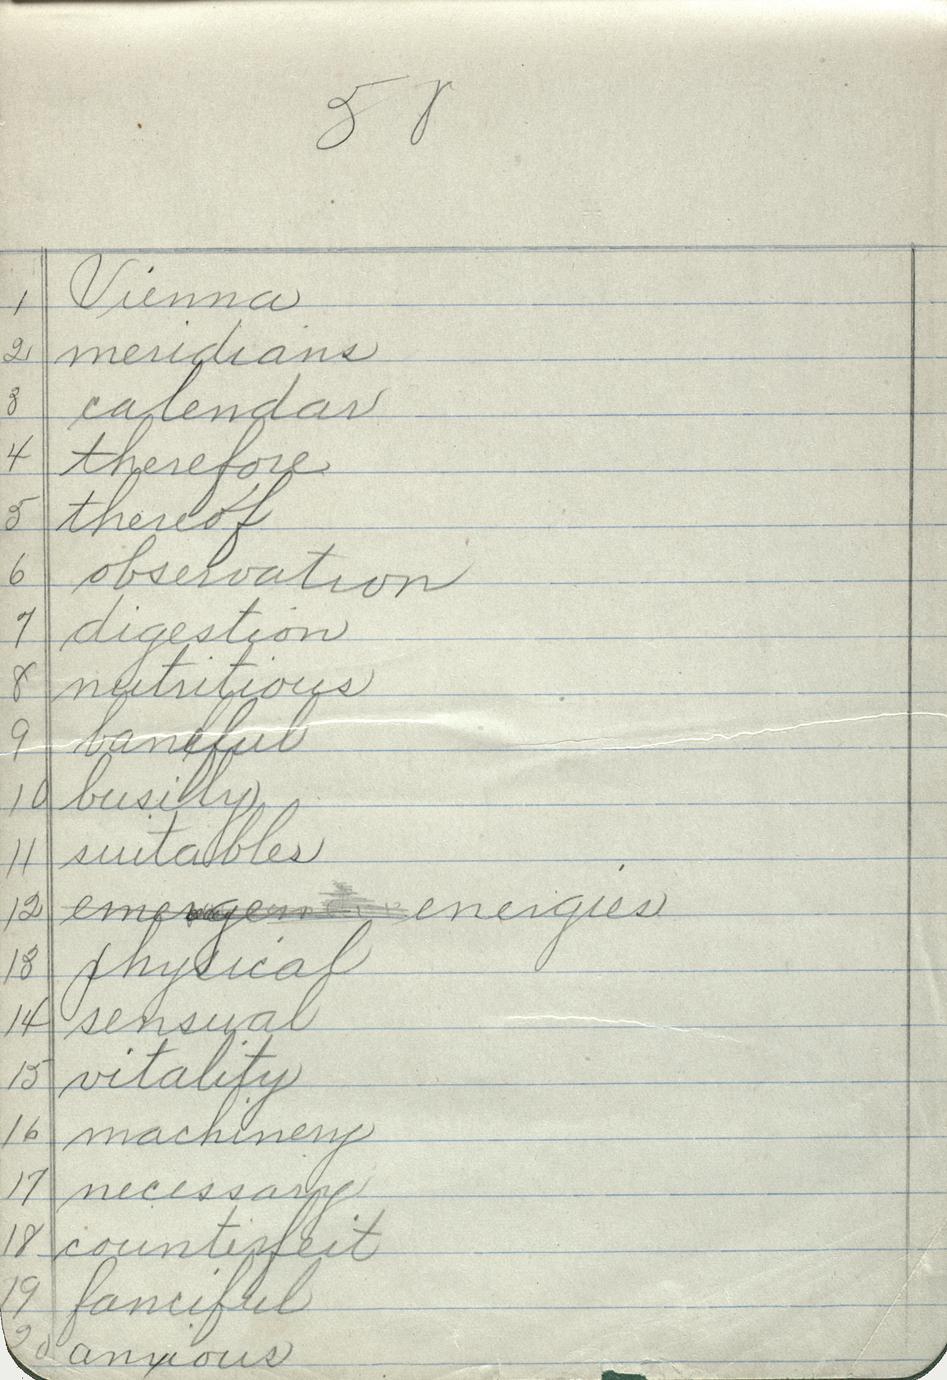 58
1 Vienna
2 meridians
3 calendar
4 therefore
5 thereof
6 observation
7 digestion
8 nutritious
9 baneful
10 busilly
11 suitables
12 emergen energies
13 physical
14 sensual
15 vitality
16 machinery
17 necessary
18 counterfeit
19 fanciful
20 anxious